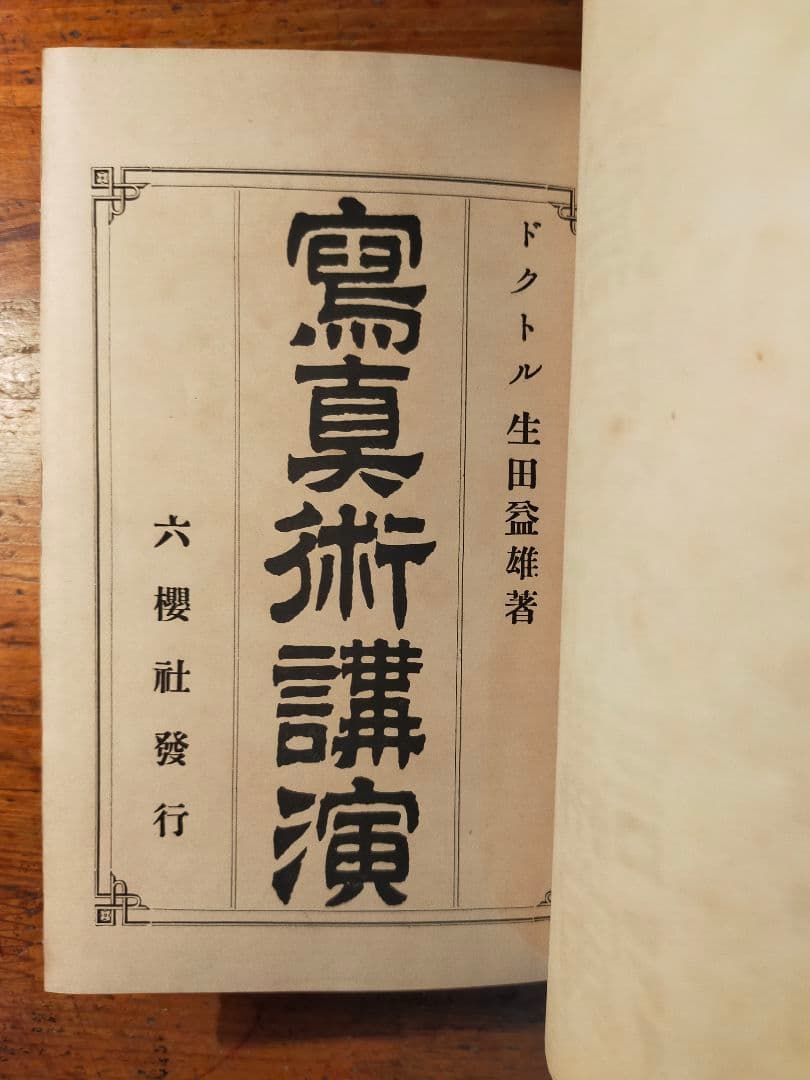 ドクトル 生田益雄著
寫眞術講演
六櫻社發行